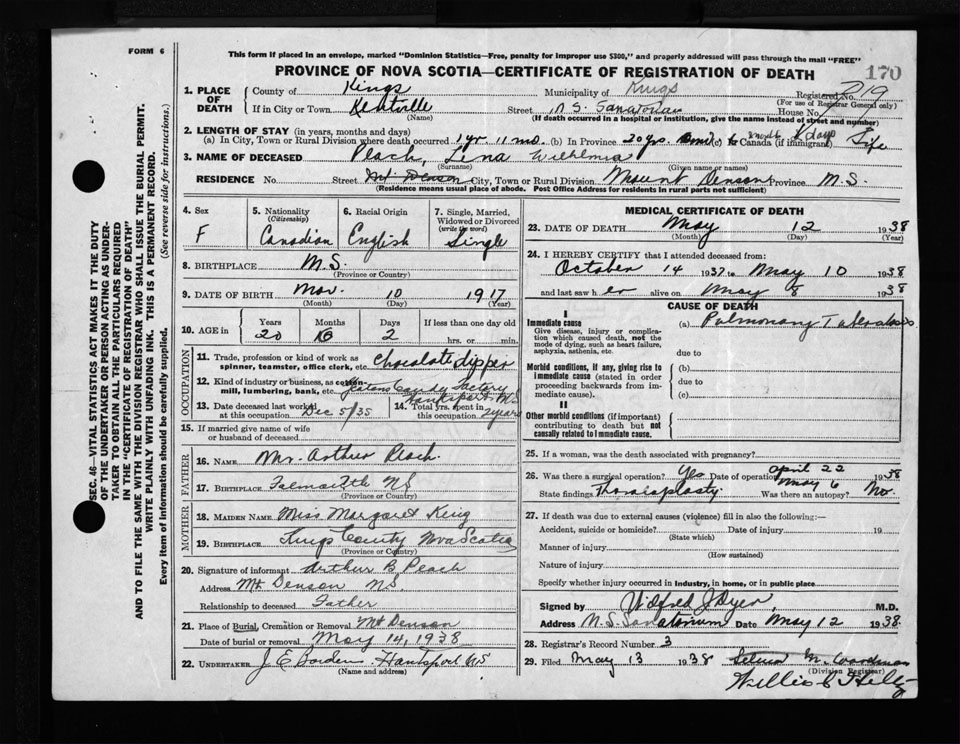 FORM 6
This form if placed in an envelope, marked "Dominion Statistics—Free, penalty for improper use $300," and properly addressed will pass through the mail "FREE"
170
PROVINCE OF NOVA SCOTIA—CERTIFICATE OF REGISTRATION OF DEATH
1. PLACE OF DEATH County of Kings Municipality of Kings Registered No. 219
(For use of Registrar General only)
If in City or Town Kentville Street N.S. Sanatorium House No.
(Name) (If death occurred in a hospital or institution, give the name instead of street and number)
2. LENGTH OF STAY (in years, months and days)
(a) In City, Town or Rural Division where death occurred 1 yr. 11 mo. (b) In Province 20 yrs. (c) to Canada (if immigrant) Life
3. NAME OF DECEASED Peach, Lena Wilhelmia
(Surname) (Given name or names)
RESIDENCE No. Street Mt Denson City, Town or Rural Division Mount Denson Province N.S.
(Residence means usual place of abode. Post Office Address for residents in rural parts not sufficient)
4. Sex F
5. Nationality (Citizenship) Canadian
6. Racial Origin English
7. Single, Married, Widowed or Divorced (write the word) Single
8. BIRTHPLACE N.S.
(Province or Country)
9. DATE OF BIRTH Mar. 10 1917
(Month) (Day) (Year)
10. AGE in Years 20 Months Days 2 If less than one day old hrs. or min.
OCCUPATION
11. Trade, profession or kind of work as spinner, teamster, office clerk, etc. Chocolate dipper
12. Kind of industry or business, as cotton-mill, lumbering, bank, etc. Candy Factory Hantsport N.S.
13. Date deceased last worked at this occupation Dec 5/35
14. Total yrs. spent in this occupation 2 years
15. If married give name of wife or husband of deceased
FATHER
16. NAME Mr. Arthur Peach
17. BIRTHPLACE Falmouth NS
MOTHER
18. MAIDEN NAME Miss Margaret King
19. BIRTHPLACE Kings County Nova Scotia
(Province or Country)
20. Signature of informant Arthur B Peach
Address Mt Denson NS.
Relationship to deceased Father
21. Place of Burial, Cremation or Removal Mt Denson
Date of burial or removal May 14, 1938
22. UNDERTAKER J E Borden Hantsport NS
(Name and address)
MEDICAL CERTIFICATE OF DEATH
23. DATE OF DEATH May 12 1938
(Month) (Day) (Year)
24. I HEREBY CERTIFY that I attended deceased from:
October 14 1937 to May 10 1938
and last saw her alive on May 8 1938
CAUSE OF DEATH
I
Immediate cause (a) Pulmonary Tuberculosis
Give disease, injury or complication which caused death, not the mode of dying, such as heart failure, asphyxia, asthenia, etc.
due to
Morbid conditions, if any, giving rise to immediate cause (stated in order proceeding backwards from immediate cause).
(b)
due to
(c)
II
Other morbid conditions (if important) contributing to death but not causally related to immediate cause.
25. If a woman, was the death associated with pregnancy?
26. Was there a surgical operation? Yes Date of operation April 22 May 6 1938
State findings Thoracoplasty Was there an autopsy? No.
27. If death was due to external causes (violence) fill in also the following:—
Accident, suicide or homicide? Date of injury 19
(State which)
Manner of injury
(How sustained)
Nature of injury
Specify whether injury occurred in industry, in home, or in public place
Signed by Wilfred J Dyer M.D.
Address N.S. Sanatorium Date May 12 1938
28. Registrar's Record Number 3
29. Filed May 13 1938 M. Woodman
(Division Registrar)
SEC. 46—VITAL STATISTICS ACT MAKES IT THE DUTY
OF THE UNDERTAKER OR PERSON ACTING AS UNDERTAKER TO OBTAIN ALL THE PARTICULARS REQUIRED
IN THE "CERTIFICATE OF REGISTRATION OF DEATH"
AND TO FILE THE SAME WITH THE DIVISION REGISTRAR WHO SHALL ISSUE THE BURIAL PERMIT.
WRITE PLAINLY WITH UNFADING INK. THIS IS A PERMANENT RECORD.
Every item of information should be carefully supplied. (See reverse side for instructions.)